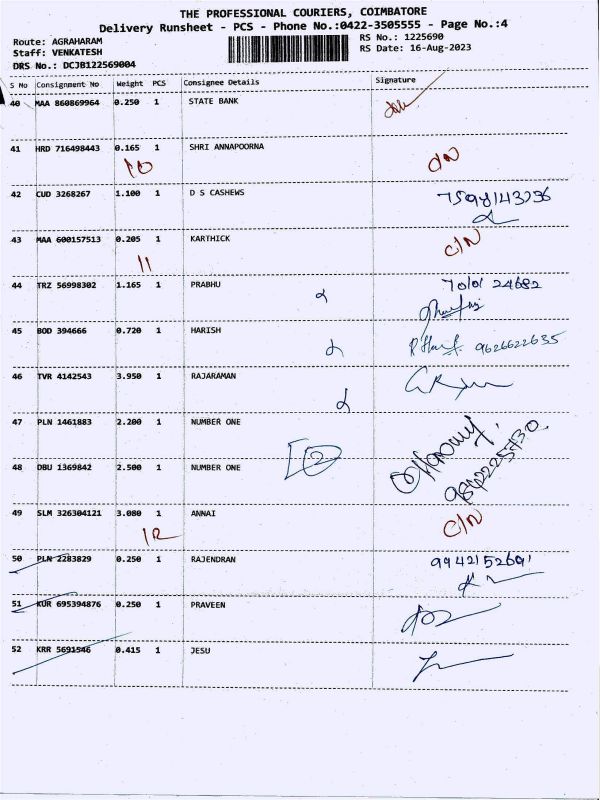 THE PROFESSIONAL COURIERS, COIMBATORE
Delivery Runsheet - PCS - Phone No.:0422-3505555 - Page No.:4
Route: AGRAHARAM RS No.: 1225690
Staff: VENKATESH RS Date: 16-Aug-2023
DRS No.: DCJB122569004
S No Consignment No Weight PCS Consignee Details Signature
40 MAA 860869964 0.250 1 STATE BANK
41 HRD 716498443 0.165 1 SHRI ANNAPOORNA
10 C/N
42 CUD 3268267 1.100 1 D S CASHEWS
43 MAA 600157513 0.205 1 KARTHICK C/N
11
44 TRZ 56998302 1.165 1 PRABHU 70101 24682
45 BOD 394666 0.720 1 HARISH
9626622635
46 TVR 4142543 3.950 1 RAJARAMAN
47 PLN 1461883 2.200 1 NUMBER ONE
48 DBU 1369842 2.500 1 NUMBER ONE
2
49 SLM 326304121 3.080 1 ANNAI C/N
12
50 PLN 2283829 0.250 1 RAJENDRAN 9942152691
51 KUR 695394876 0.250 1 PRAVEEN
52 KRR 5691546 0.415 1 JESU